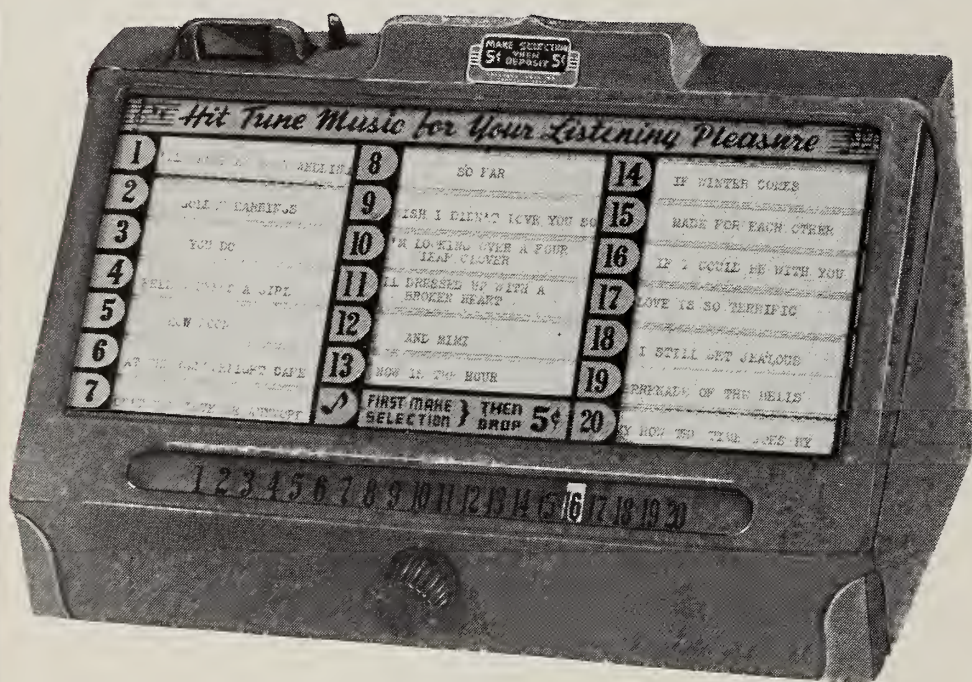 MAKE SELECTION
THEN
5¢ DEPOSIT 5¢
Hit Tune Music for Your Listening Pleasure
1
2 GOLDEN EARRINGS
3 YOU DO
4 A GIRL
5
6 AT THE CAFE
7
8 SO FAR
9 WISH I DIDN'T LOVE YOU SO
10 I'M LOOKING OVER A FOUR
LEAF CLOVER
11 ALL DRESSED UP WITH A
BROKEN HEART
12 AND MIMI
13 NOW IS THE HOUR
FIRST MAKE
SELECTION } THEN
DROP 5¢
14 IF WINTER COMES
15 MADE FOR EACH OTHER
16 IF I COULD BE WITH YOU
17 LOVE IS SO TERRIFIC
18 I STILL GET JEALOUS
19 SERENADE OF THE BELLS
20 MY HOW THE TIME GOES BY
1 2 3 4 5 6 7 8 9 10 11 12 13 14 15 16 17 18 19 20